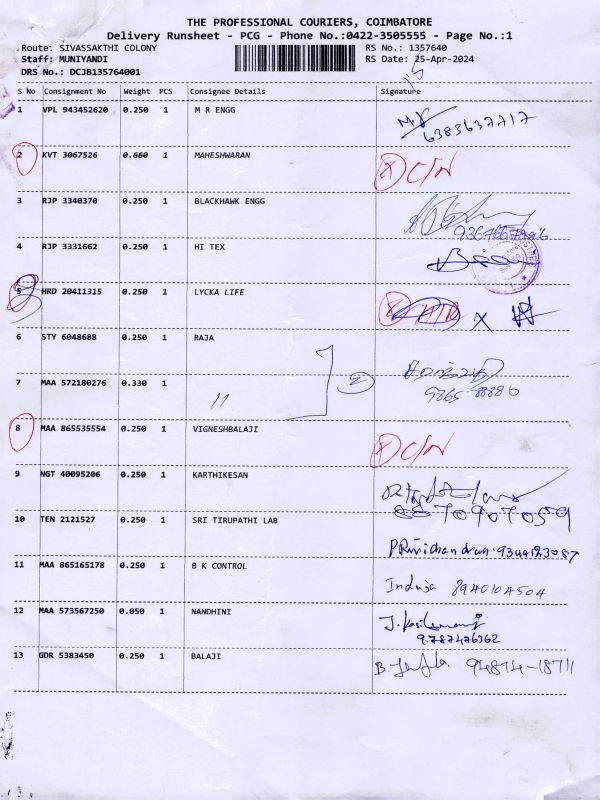 THE PROFESSIONAL COURIERS, COIMBATORE
Delivery Runsheet - PCG - Phone No.:0422-3505555 - Page No.:1
Route: SIVASSAKTHI COLONY RS No.: 1357640
Staff: MUNIYANDI RS Date: 25-Apr-2024
DRS No.: DCJB135764001
S No Consignment No Weight PCS Consignee Details Signature
1 VPL 943452620 0.250 1 M R ENGG
6383637717
2 KVT 3067526 0.660 1 MAHESHWARAN
3 RJP 3340370 0.250 1 BLACKHAWK ENGG
4 RJP 3331662 0.250 1 HI TEX
5 HRD 20411315 0.250 1 LYCKA LIFE
X
6 STY 6048688 0.250 1 RAJA
7 MAA 572180276 0.330 1 "
8 MAA 865535554 0.250 1 VIGNESHBALAJI
9 NGT 40095206 0.250 1 KARTHIKESAN
8870907059
10 TEN 2121527 0.250 1 SRI TIRUPATHI LAB
11 MAA 865165178 0.250 1 B K CONTROL
Induja 8940104504
12 MAA 573567250 0.050 1 NANDHINI
9787476362
13 GDR 5383450 0.250 1 BALAJI
94874-18711